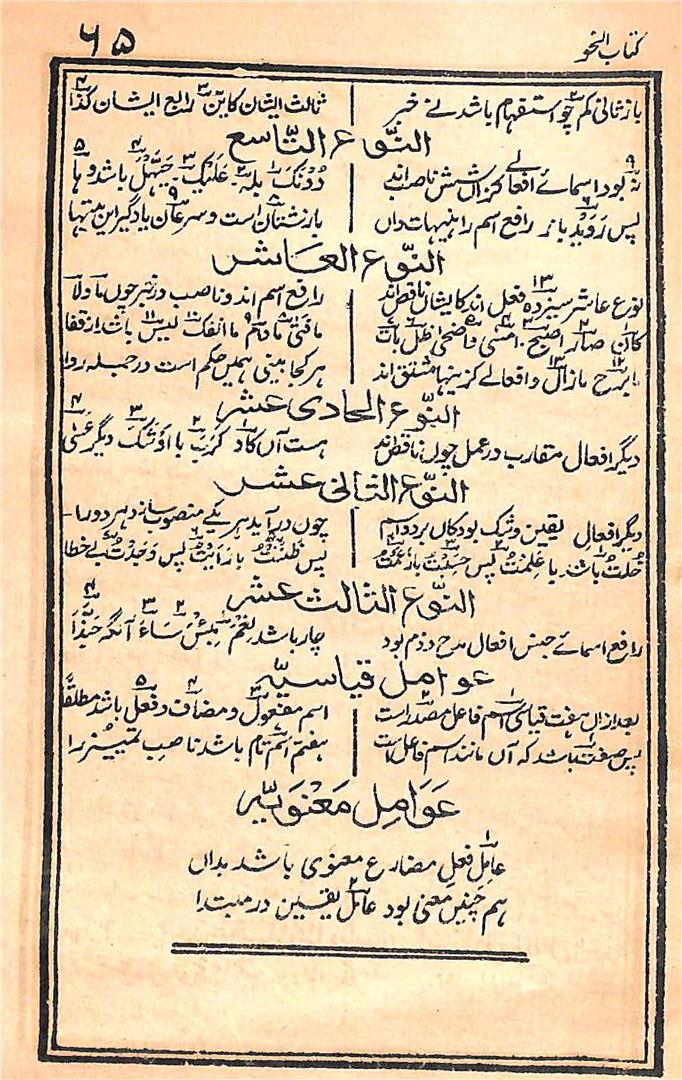 کتاب النحو
۶۵
باز ثانی کم چو استفہام باشد نے خبر
ثالث ایشان کاین رابع ایشان کذا
النّوع التّاسع
نہ بود اسمائے افعالے کزاں شش ناصب اند
دُونَکَ بلہ عَلَیْکَ حَیَّہَلْ باشد و ہا
پس رُوَیْد باز رافع اسم را ہیہات داں
باز شتان است و سرعان یاد گیر ایں
النّوع العاشر
نوع عاشر سیزدہ فعل اند کایشاں ناقص اند
رافع اسم اند و ناصب در خبر چوں ما و لا
کان صار اصبح امسیٰ و اضحیٰ ظل بات
ما فتیٔ مادام ما انفک لیس باشد از قفا
ما برح مازال و افعالے کزینہا مشتق اند
ہر کجا بینی ہمیں حکم است در جملہ روا
النّوع الحادی عشر
دیگر افعال مقارب در عمل چوں ناقص اند
ہست آں کَادَ کَرَبَ با اَوْشَکَ دیگر عَسٰی
النّوع الثانی عشر
دیگر افعالِ یقین و شک بود کاں بر دو اسم
چوں در آید ہر یکے منصوب سازد ہر دو را
خِلْتُ باشد با عَلِمْتُ پس حَسِبْتُ باز زَعَمْتُ
پس ظَنَنْتُ باز رَأیْتُ پس وَجَدْتُ بے خطا
النّوع الثالث عشر
رافع اسمائے جنس افعال مدح و ذم بود
چار باشد نِعْمَ بِئْسَ سَاءَ آنگہ حَبَّذَا
عوامل قیاسیّہ
بعد ازاں ہفت قیاسی اسم فاعل مصدر است
اسم مفعول و مضاف و فعل باشد مطلقا
پس صفت باشد کہ آں مانند اسم فاعل است
ہفتم اسم تام باشد ناصب تمییز را
عَوَامِل مَعْنَوِیّہ
عامل فعل مضارع معنوی باشد بداں
ہم چنیں معنی بود عامل یقیں در مبتدا